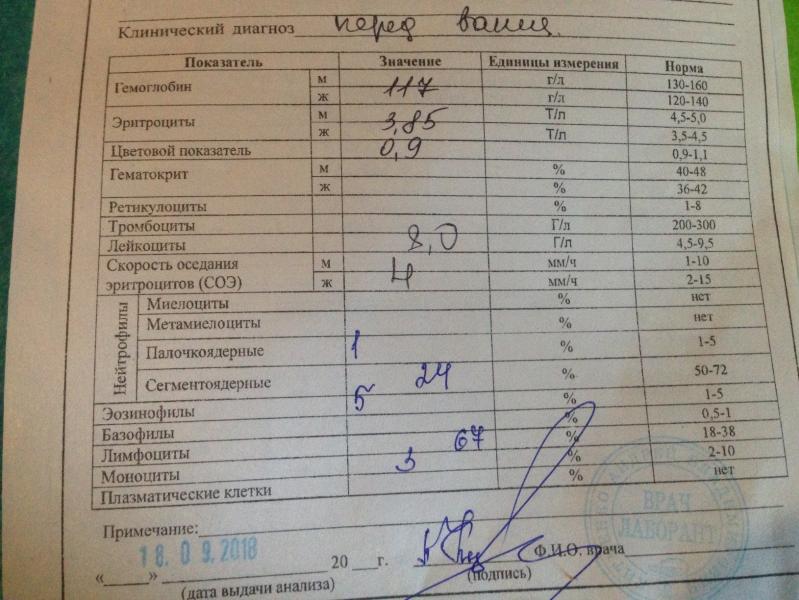 Клинический диагноз перед вакц.
Показатель Значение Единицы измерения Норма
Гемоглобин м 117 г/л 130-160
ж г/л 120-140
Эритроциты м 3,85 Т/л 4,5-5,0
ж Т/л 3,5-4,5
Цветовой показатель 0,9 0,9-1,1
Гематокрит м % 40-48
ж % 36-42
Ретикулоциты % 1-8
Тромбоциты Г/л 200-300
Лейкоциты 8,0 Г/л 4,5-9,5
Скорость оседания м 4 мм/ч 1-10
эритроцитов (СОЭ) ж мм/ч 2-15
Нейтрофилы
Миелоциты % нет
Метамиелоциты % нет
Палочкоядерные 1 % 1-5
Сегментоядерные 24 % 50-72
Эозинофилы 5 % 1-5
Базофилы % 0,5-1
Лимфоциты 67 % 18-38
Моноциты 3 % 2-10
Плазматические клетки % нет
Примечание:
18.09.2018
« » 20 г. Ф.И.О. врача
(дата выдачи анализа) (подпись)
ВРАЧ
ЛАБОРАНТ